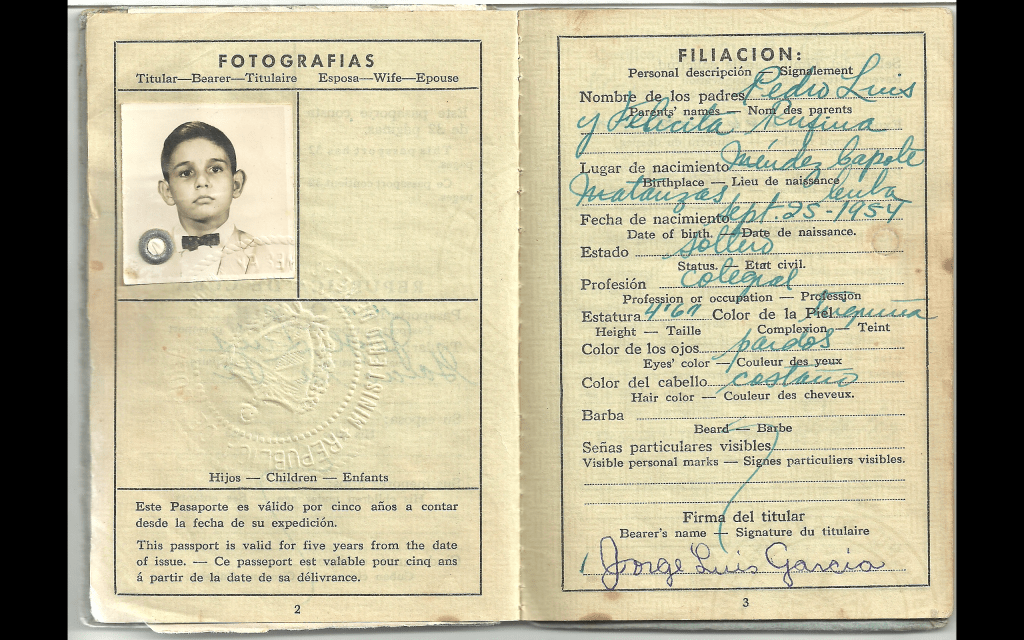 FOTOGRAFIAS
Titular—Bearer—Titulaire Esposa—Wife—Epouse
REPUBLIC MINISTERIO
Hijos — Children — Enfants
Este Pasaporte es válido por cinco años a contar
desde la fecha de su expedición.
This passport is valid for five years from the date
of issue. — Ce passeport est valable pour cinq ans
á partir de la date de sa délivrance.
2
FILIACION:
Personal descripción — Signalement
Nombre de los padres Pedro Luis
Parents' names — Nom des parents
y Felicita Rufina
Lugar de nacimiento Méndez Capote
Birthplace — Lieu de naissance
Matanzas Cuba
Fecha de nacimiento Sept. 25-1954
Date of birth. — Date de naissance.
Estado soltero
Status. — Etat civil.
Profesión colegial
Profession or occupation — Profession
Estatura 4'6" Color de la Piel trigueña
Height — Taille Complexion — Teint
Color de los ojos pardos
Eyes' color — Couleur des yeux
Color del cabello castaño
Hair color — Couleur des cheveux.
Barba
Beard — Barbe
Señas particulares visibles
Visible personal marks — Signes particuliers visibles.
Firma del titular
Bearer's name — Signature du titulaire
Jorge Luis García
3